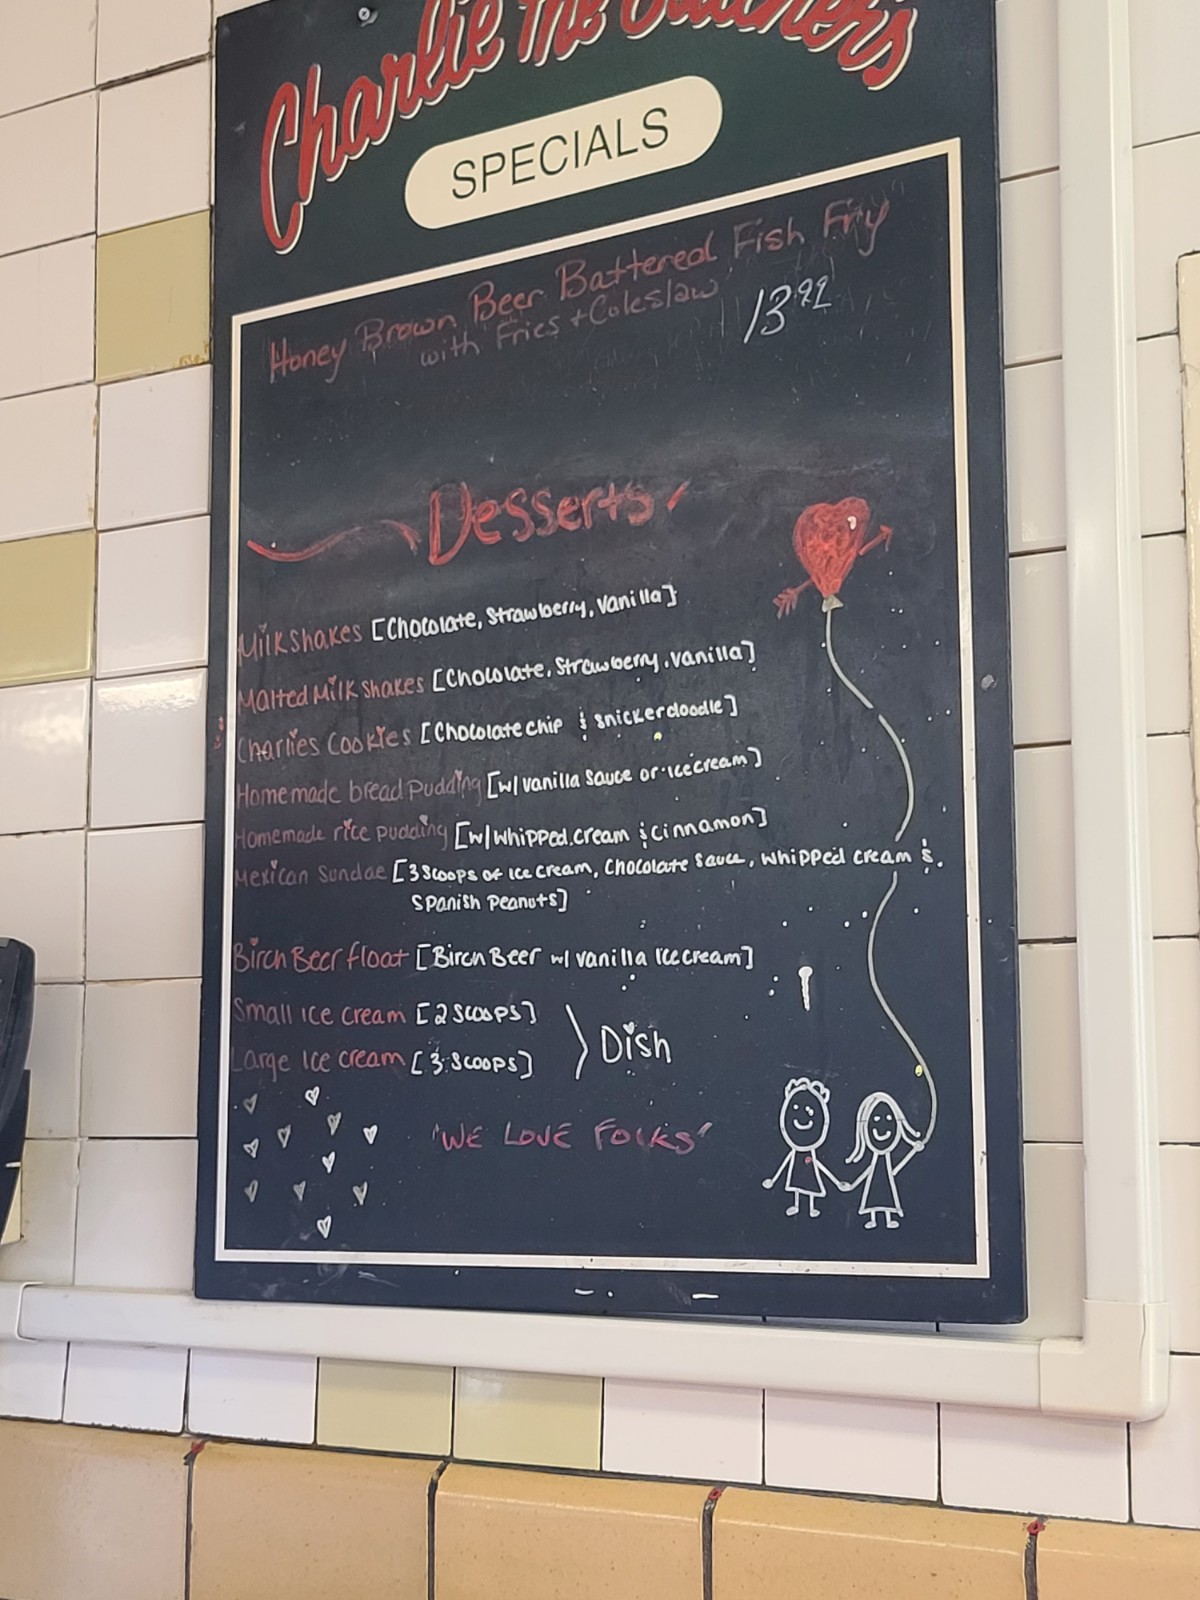 Charlie The Butcher's
SPECIALS
Honey Brown Beer Battered Fish Fry
with Fries + Coleslaw 13.92
Desserts
Milkshakes [Chocolate, Strawberry, Vanilla]
Malted Milkshakes [Chocolate, Strawberry, Vanilla]
Charlies Cookies [Chocolate chip & snickerdoodle]
Homemade bread pudding [w/ vanilla sauce or icecream]
Homemade rice pudding [w/ whipped cream & cinnamon]
Mexican Sundae [3 scoops of ice cream, chocolate sauce, whipped cream &
Spanish Peanuts]
Birch Beer float [Birch Beer w/ vanilla Ice cream]
Small Ice cream [2 scoops]
Large Ice cream [3 scoops]
Dish
"WE LOVE FOLKS"